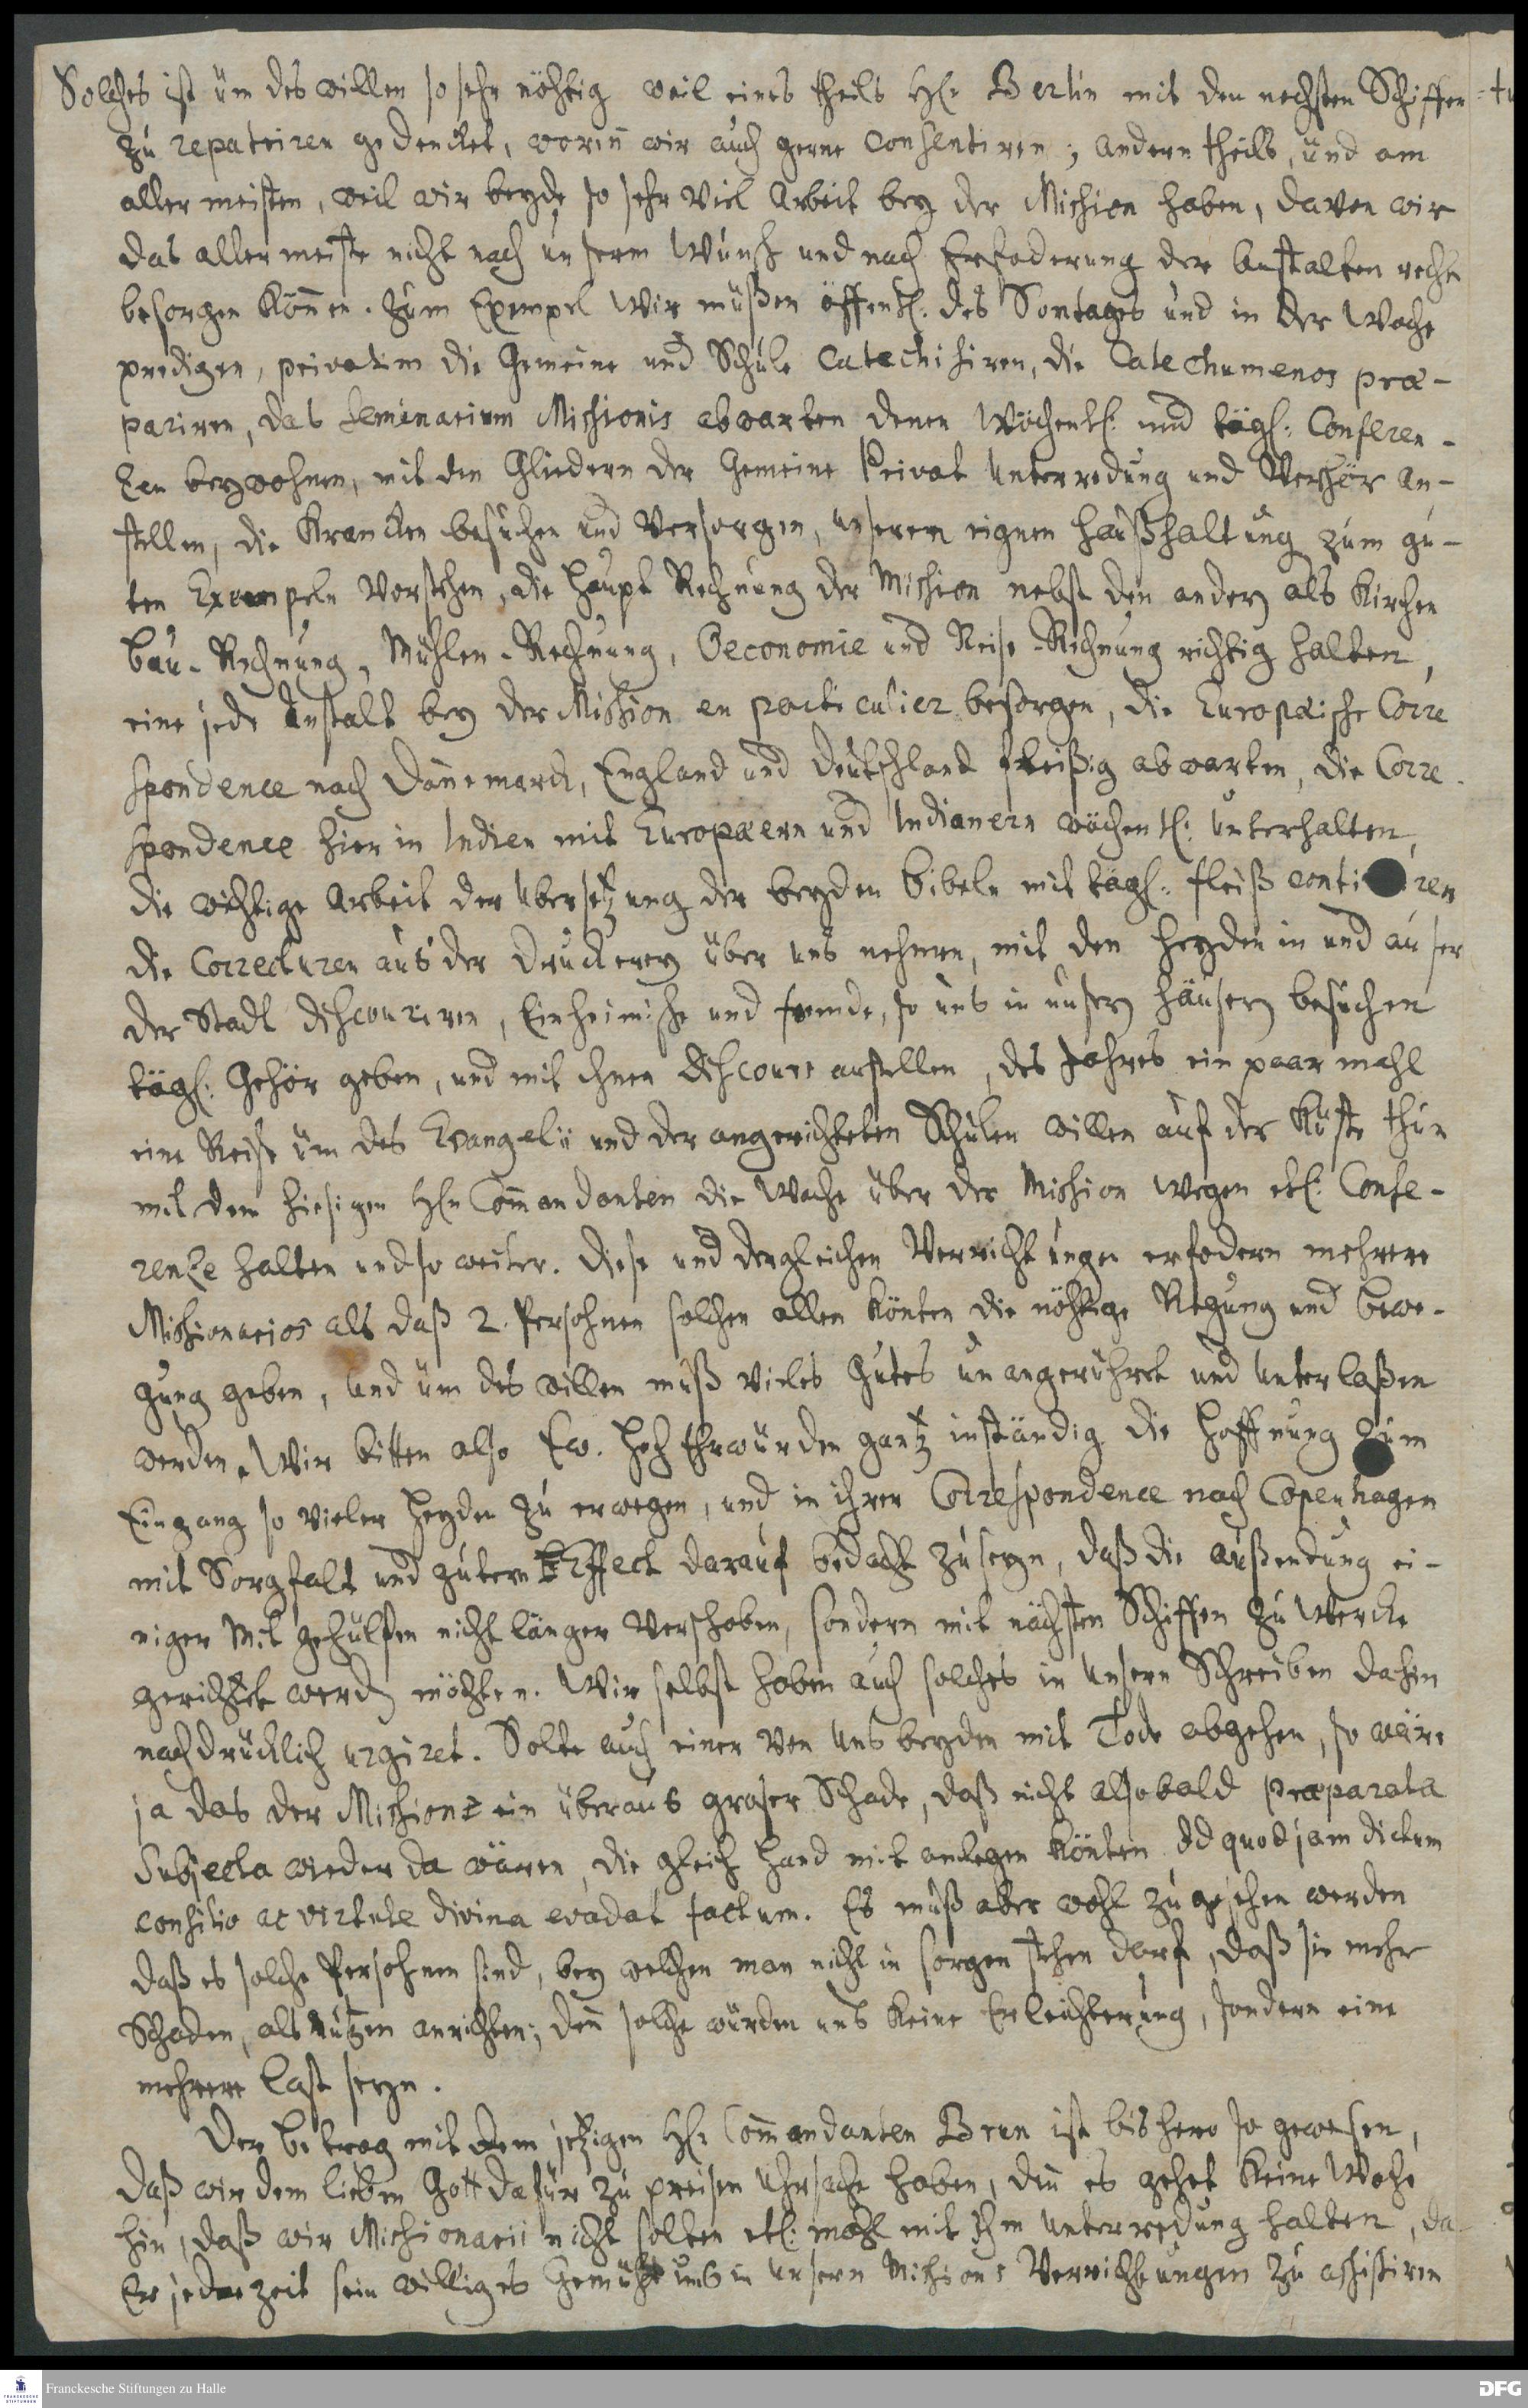 Solches ist üm des willen so sehr nöhtig weil eines theils HE. Berlin mit den nechsten Schiffen
zu repatriiren gedencket, worinn wir auch gerne consentiren; andern theils, und am
aller meisten, weil wir beyde so sehr viel Arbeit bey der Mission haben, davon wir
das aller meiste nicht nach unserm Wunsch und nach Erfoderung der Anstalten recht
besorgen können. Zum Exempel Wir müßen öffentl. des Sontages und in der Woche
predigen, privatim die Gemeine und Schule Catechisiren, die Catechumenos præ-
pariren, das Seminarium Missionis abwarten denen Wöchentl. und tägl. Conferen-
zen beywohnen, mit den Gliedern der Gemeine Privat Unterredung und Verhör an-
stellen, die Krancken besuchen und Versorgen, unserer eignen Haußhaltung zum gu-
ten Exempeln Vorstehen, die Haupt Rechnung der Mission nebst den andern als Kirchen
bau-Rechnung, Mühlen-Rechnung, Oeconomie und Reise-Rechnung richtig halten,
eine jede Anstalt bey der Mission en particulier besorgen, die Europäische Corre
spondence nach Dännemarck, England und Deutschland fleißig abwarten, die Corre-
spondence hier in Indien mit Europæern und Indianern wöchentl. Unterhalten,
die wichtige Arbeit der Ubersetzung der beyden Bibeln mit tägl. fleiß conti ren
die Correcturen aus der Druckerey über uns nehmen, mit den Heyden in und auser
der Stadt discouriren, Einheimische und fremde, so uns in unsern Häusern besuchen
tägl. Gehör geben, und mit ihnen Discourse anstellen, des Jahres ein paar mahl
eine Reise üm des Evangelii und der angerichteten Schulen willen auf der Küste thun
mit dem hiesigen HEn Commandanten die Woche über der Mission wegen etl. Confe-
renze halten und so weiter. Diese und dergleichen Verrichtungen erfodern mehrere
Missionarios als daß 2. Persohnen solchen allen könten die nöhtige Regung und bewe-
gung geben, und üm des willen muß vieles Gutes unangerühret und unterlaßen
werden. Wir bitten also Ew. HochEhrwürden gantz inständig die Hoffnung zum
Eingang so vieler Heyden zu erwegen, und in ihrer Correspondence nach Copenhagen
mit Sorgfalt und gutem Effect darauf bedacht zu seyn, daß die außendung ei-
niger Mit gehülfen nicht länger Verschoben, sondern mit nächsten Schiffen zu Wercke
gerichtet werden möchten. Wir selbst haben auch solches in Unsern Schreiben dahin
nachdrücklich urgiret. Solte auch einer von uns beyden mit Tode abgehen, so wäre
ja das der Mission ein überaus groser Schade, daß nicht alsobald præparata
Subjecta wieder da wären, die gleich Hand mit anlegen könten. Id quod jam dictum
consilio ac virtute divina evadat factum. Es muß aber wohl zugesehen werden
daß es solche Persohnen sind, bey welchen man nicht in sorgen stehen darf, daß sie mehr
Schaden, als nutzen anrichten; denn solche würden uns keine Erleichterung, sondern eine
mehrere Last seyn.
Der betrag mit dem jetzigen HE. Commandanten Brun ist bishero so gewesen,
daß wir dem lieben Gott dafür zu preisen Uhrsache haben, denn es gehet keine Woche
hin, daß wir Missionarii nicht solten etl. mahl mit ihm Unterredung halten, da
Er jederzeit sein williges Gemüht uns in unsern Missions Verrichtungen zu assistiren
Franckesche Stiftungen zu Halle
DFG